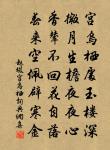 宫乌栖处玉楼深
微月生檐夜夜心
香辇不回花自落
春来空佩辟寒金
赵嘏宫乌栖词共闻集